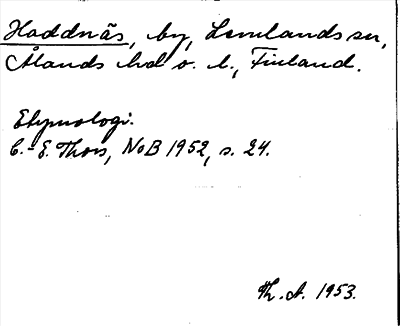 Haddnäs, by, Lemlands sn,
Ålands hd o. l., Finland.
Etymologi.
C.-E. Thors, NoB 1952, s. 24.
Th. A. 1953.